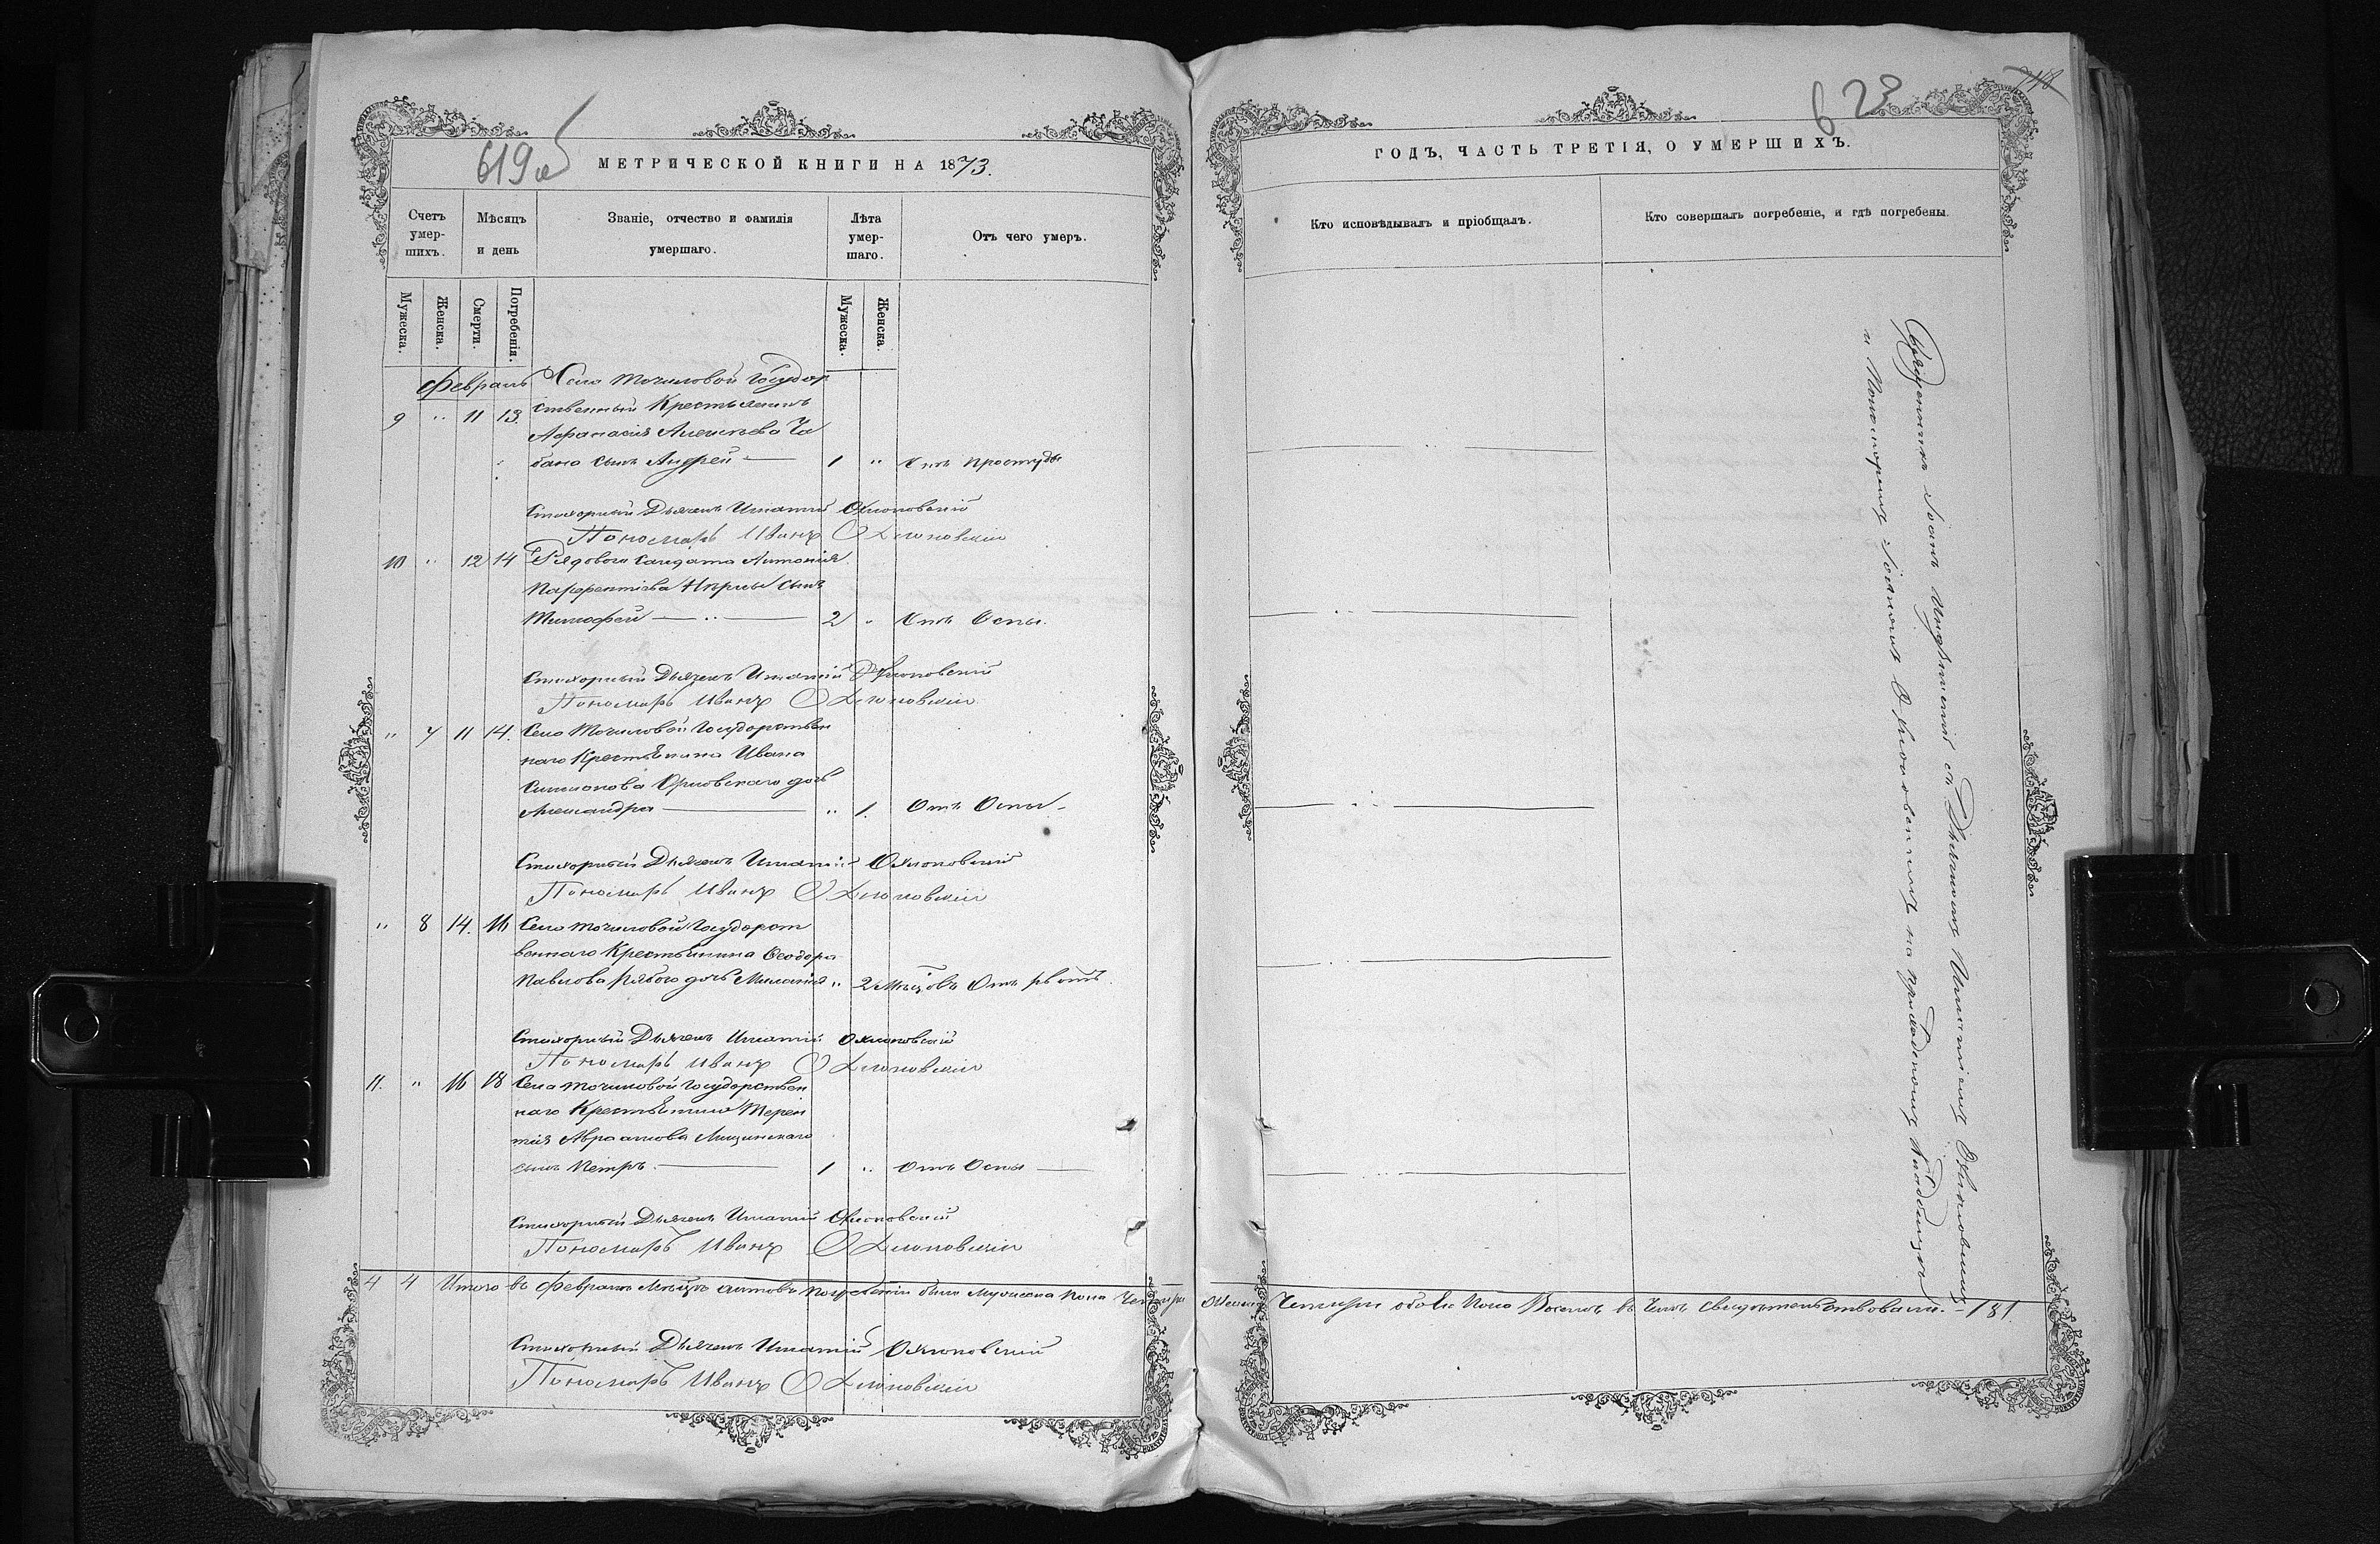 619 об
МЕТРИЧЕСКОЙ КНИГИ НА 1873.
Счетъ умер-шихъ.
Мѣсяцъ и день
Званіе, отчество и фамилія умершаго.
Лѣта умер-шаго.
Отъ чего умеръ.
Мужеска. Женска. Смерти. Погребенія. Мужеска. Женска.
Февраль Села Точиловой Государ
9 " 11 13. ственный Крестьянинъ
Афанасія Алексѣева Ча
бана сынъ Андрей — 1 " Отъ простуды
Стихорный Дьячекъ Игнатій Охлоповскій
Пономарь Иванъ Охлоповскій
10 " 12 14 Рядового Солдата Антонія
Парфентіева сынъ
Тимофей — " — 2 " Отъ Оспы.
Стихорный Дьячекъ Игнатій Охлоповскій
Пономарь Иванъ Охлоповскій
" 7 11 14. Села Точиловой Государствен
наго Крестьянина Ивана
Симионова Орловскаго дочь
Александра — " 1. Отъ Оспы —
Стихорный Дьячекъ Игнатій Охлоповскій
Пономарь Иванъ Охлоповскій
" 8 14. 16 Села Точиловой Государст
веннаго Крестьянина Ѳеодора
Павлова Рябого дочь " 2 Мѣс̃цовъ Отъ рвотъ.
Стихорный Дьячекъ Игнатій Охлоповскій
Пономарь Иванъ Охлоповскій
11. " 16 18 Села Точиловой Государствен
наго Крестьянина Терен
тія Авраамова
сынъ Петръ. — 1 " Отъ Оспы —
Стихорный Дьячекъ Игнатій Охлоповскій
Пономарь Иванъ Охлоповскій
4 4 Итого въ Февралѣ Мѣс̃цѣ актовъ погребеній было Мужеска пола Четыри
Стихорный Дьячекъ Игнатій Охлоповскій
Пономарь Иванъ Охлоповскій
623
ГОДЪ, ЧАСТЬ ТРЕТІЯ, О УМЕРШИХЪ.
Кто исповѣдывалъ и пріобщалъ.
Кто совершалъ погребеніе, и гдѣ погребены.
Священникъ Іоанъ съ Дьячкомъ Игнатіемъ Охлоповскимъ
и Пономоремъ Іоанномъ Охлоповскимъ на приходскомъ Кладбищѣ
Женска Четыри обоего пола Восемь въ чемъ свидѣтельствовали. —